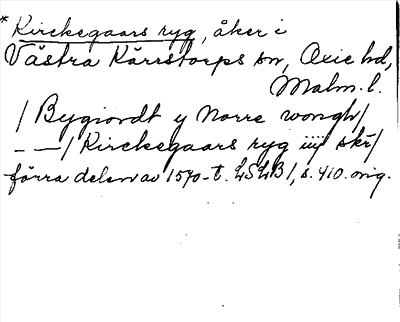 * Kirckegaars ryg, åker i
Västra Kärrstorps sn, Oxie hd,
Malm. l.
/ Bygiordt y Norre wongh /
— — / Kirckegaars ryg iiij skr /
förra delen av 1570-t. LSLB 1, s. 410. orig.